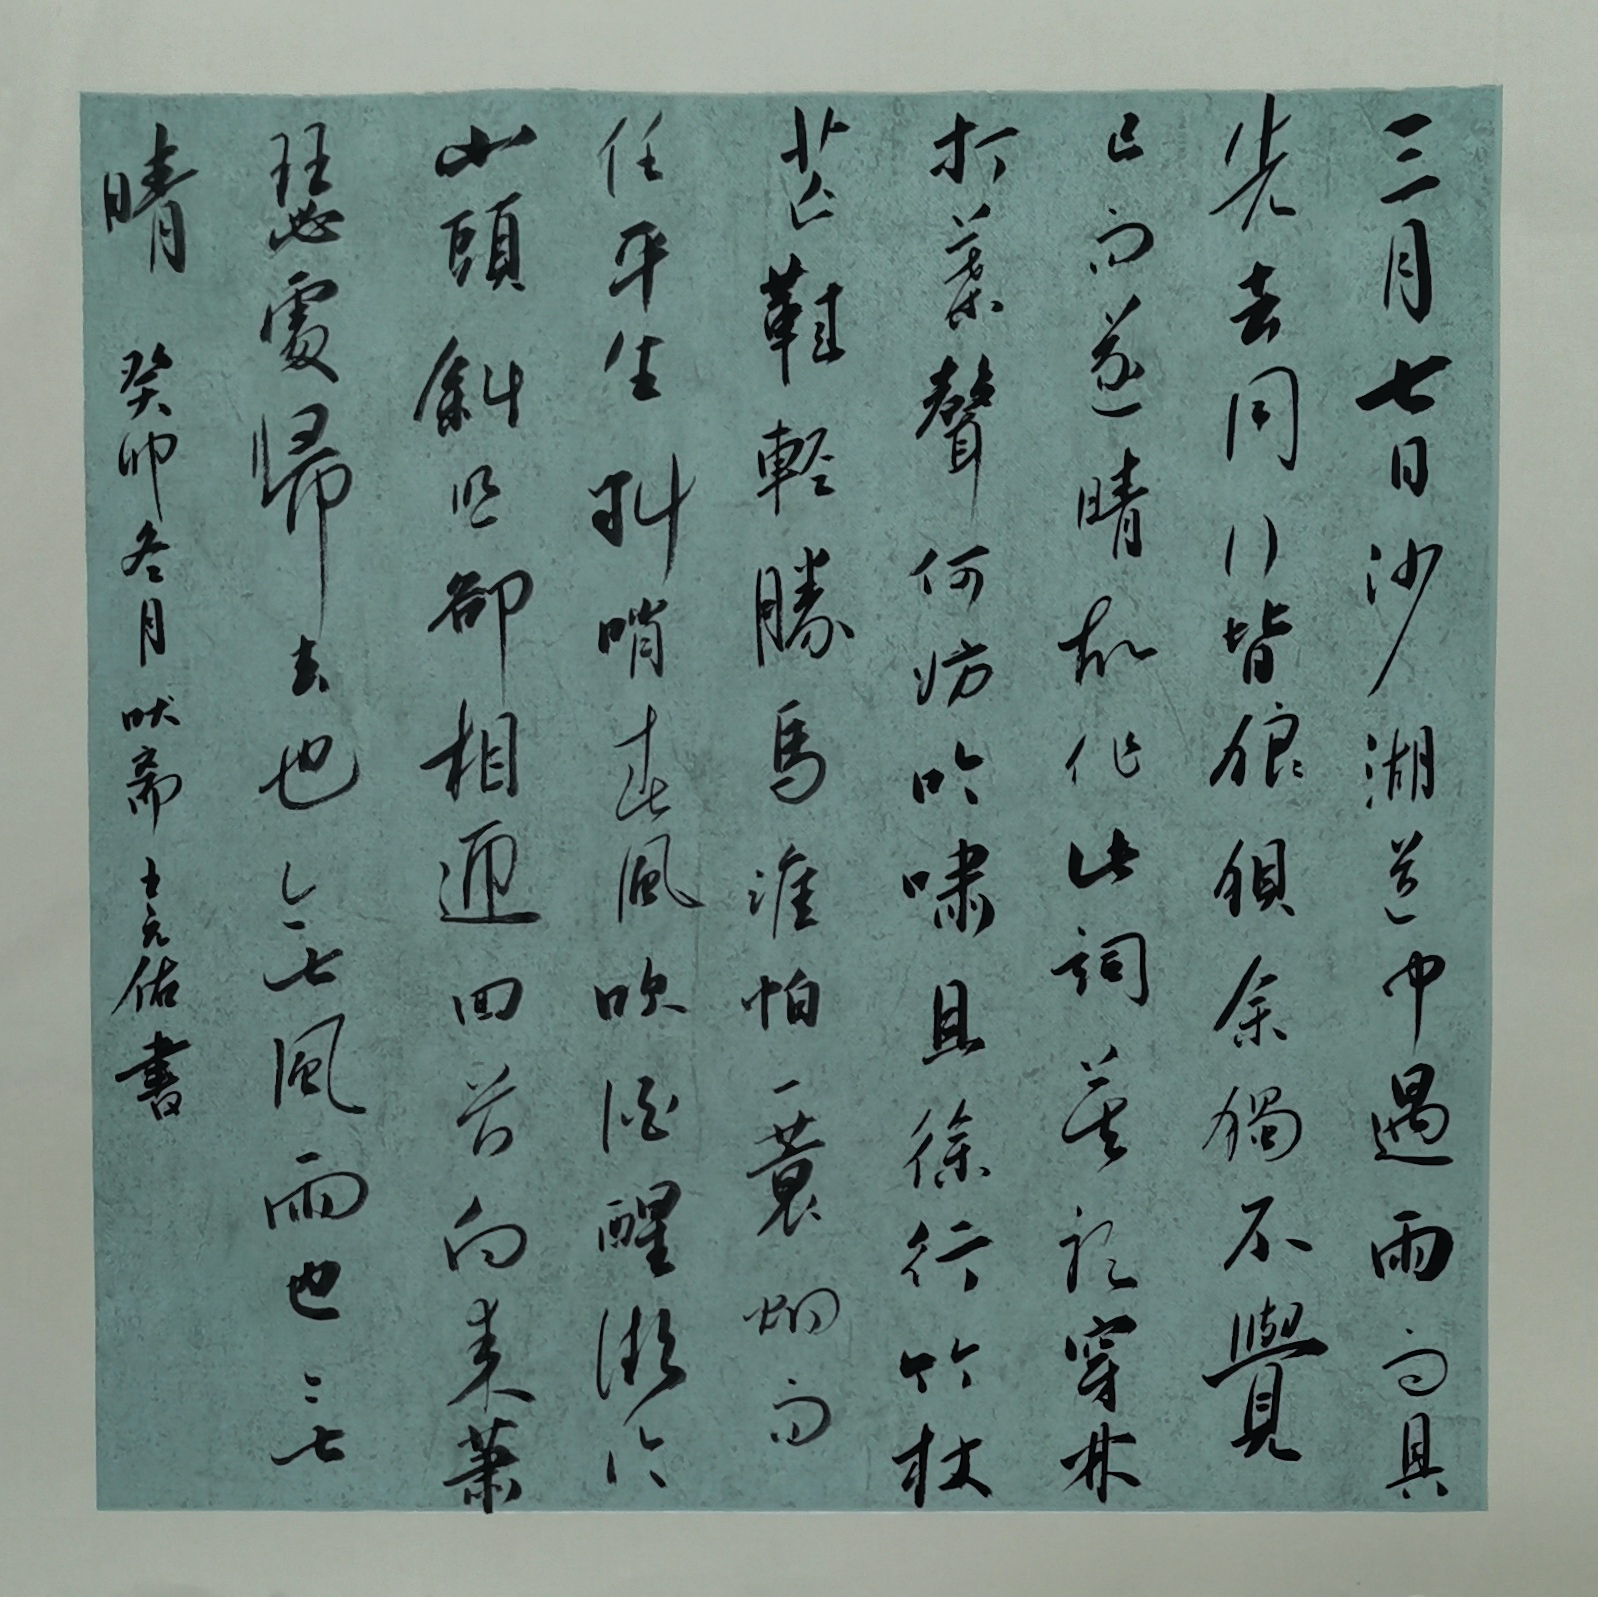 三月七日沙湖道中遇雨雨具
先去同行皆狼狽余獨不覺
已而遂晴故作此詞莫聽穿林
打葉聲何妨吟嘯且徐行竹杖
芒鞋輕勝馬誰怕一蓑烟雨
任平生料峭春風吹酒醒微冷
山頭斜照卻相迎回首向來蕭
瑟處歸去也無風雨也無
晴 癸卯冬月吠斋王元佑書